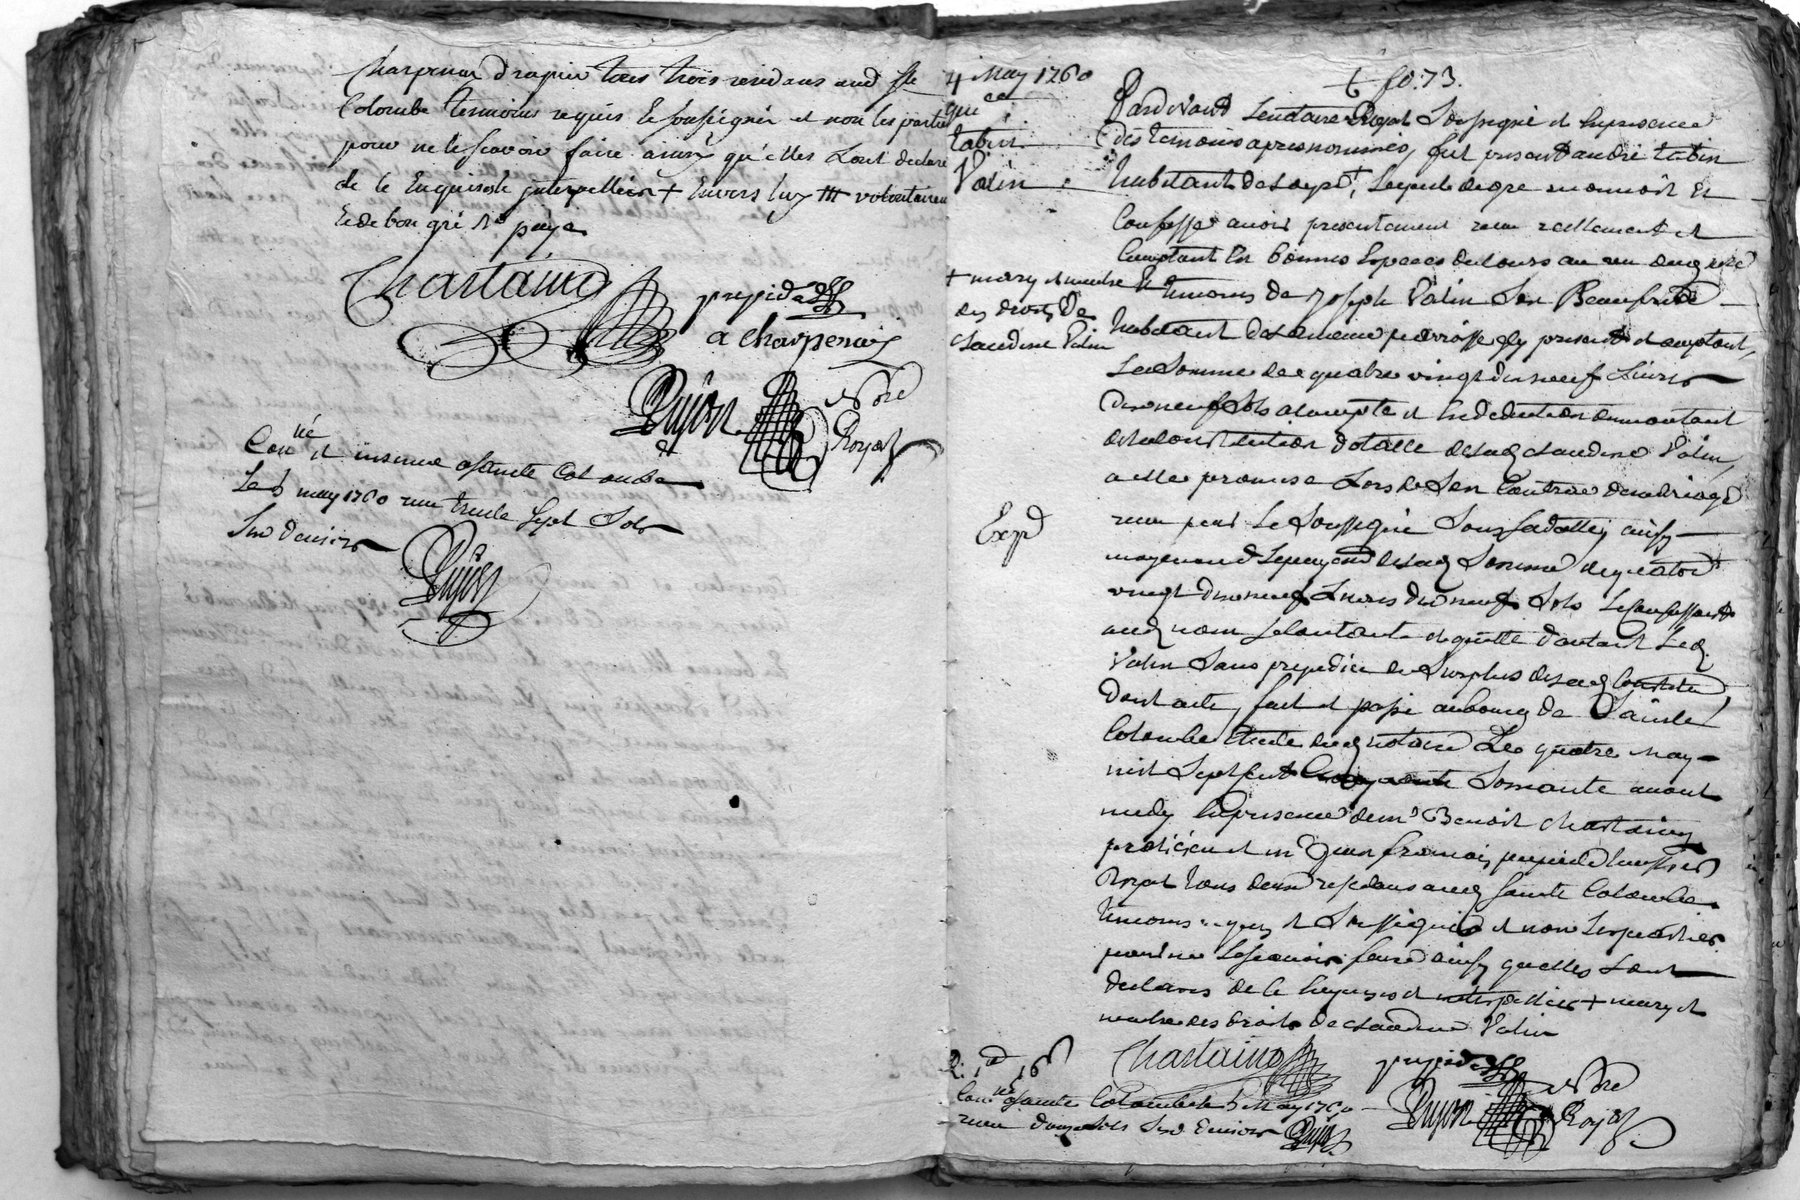 Charpenay drapier tous trois residans aud ste
Colombe temoins requis et soussignés et non les parties
pour ne le scavoir faire ainsy qu'elles l'ont declaré
de ce enquis et interpellées + envers luy ttt volontairem
et de bon gré payé
Chastaing
prejides
a charpenay
Dujon
nore
Royal
Conné et insinué a sainte Colombe
Le 5 may 1760 receu trente sept sols
six deniers
Dujon
4 May 1760
quce
tabin
Valin
+ fo. 73.
Pardevant le notaire Royal soussigné et en presence
des temoins apres nommés, fut present andré tabin
habitant de Lay, Lequel de gré reconnoit et
confesse avoir presentement receu reellement et
comptant en bonnes especes du cours au veu dud nore
+ mary et maitre
des droits de
claudine Valin
et temoins de Joseph Valin son Beaufrere
habitant de la meme parroisse icy present et acceptant,
La somme de quatre vingt dix neuf Livres
dix neuf sols a compte et en deduction du montant
de la constitution dotalle de lad claudine Valin,
a elle promise Lors de son Contrat de mariage
Expd
receu par le soussigné sous sa datte, ainsy
moyenant le payement de lad somme de quatre
vingt dix neuf Livres dix neuf sols le confessant
aud nom se contante et quitte d'autant led
Valin sans prejudice du surplus de lad constitution
dont acte, fait et passé au bourg de Sainte
Colombe etude dud notaire Le quatre may
mil sept cent soixante avant
midy en presence de mr Benoit chastaing
praticien et mr Jean francois prejide huissier
Royal tous deux residans aud sainte Colombe
temoins requis et soussignés et non les parties
pour ne le scavoir faire ainsy qu'elles l'ont
declaré de ce enquises et interpellées + mary et
maitre des droits de claudine Valin
Chastaing
prejides
R. 1d 16s
Conné a sainte Colombe le 5 May 1760
receu douze sols six deniers Dujon
Dujon
nore
Royal